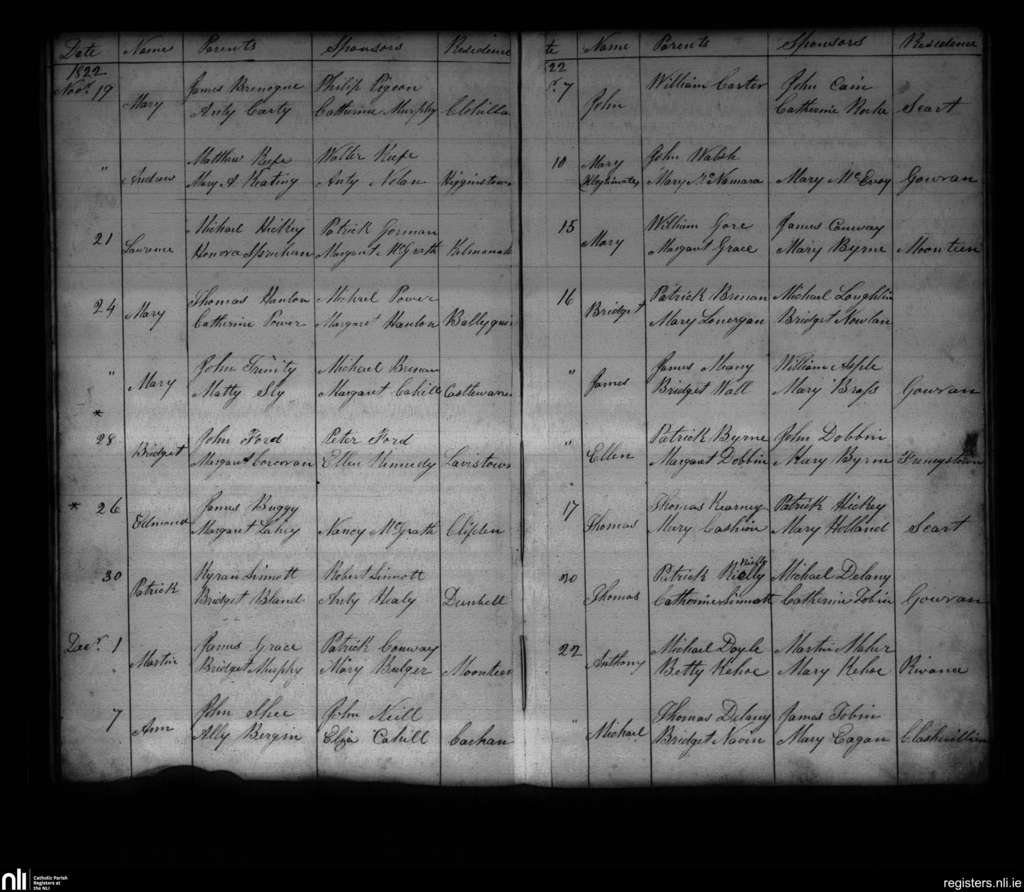 Date Name Parents Sponsors Residence
1822
Novr. 19 Mary James Brenogue Philip Pigeon
Anty Carty Catherine Murphy Clohilla
" Andrew Matthew Keefe Walter Keefe
Mary A Keating Anty Nolan Higginstown
21 Michael Hickey Patrick Gorman
Honora Margaret McGrath
24 Mary Thomas Hanlon Michael Power
Catherine Power Margaret Hanlon
" Mary John Trinity Michael Brenan
Matty Sly Margaret Cahill
*
28 Bridget John Ford Peter Ford
Margaret Corcoran Ellen Kennedy Lavistown
* 26 Edmond James Buggy
Margaret Lahey Nancy McGrath Clifden
30 Patrick Kyran Sinnott Robert Sinnott
Bridget Bland Anty Healy Dunbell
Decr. 1 Martin James Grace Patrick Conway
Bridget Murphy Mary Bulger Moonteen
7 Ann John Shee John Neill
Ally Bergin Eliza Cahill
te Name Parents Sponsors Residence
22
r. 7 John William Carter John Cain
Catherine Roche Scart
10 Mary John Walsh
Illegitimate Mary McNamara Mary McEvoy Gowran
15 Mary William Gore James Conway
Margaret Grace Mary Byrne Moonteen
16 Bridget Patrick Brenan Michael Loughlin
Mary Lonergan Bridget Nowlan
" James James Meany William Apple
Bridget Wall Mary Brass Gowran
" Ellen Patrick Byrne John Dobbin
Margaret Dobbin Mary Byrne Freneystown
17 Thomas Thomas Kearney Patrick Hickey
Mary Cashin Mary Holland Scart
20 Thomas Patrick Rielly Michael Delany
Catherine Sinnott Catherine Tobin Gowran
22 Anthony Michael Doyle Martin Maher
Betty Kehoe Mary Kehoe
" Michael Thomas Delany James Tobin
Bridget Navin Mary Eagan
nli
Catholic Parish
Registers at
the NLI
registers.nli.ie